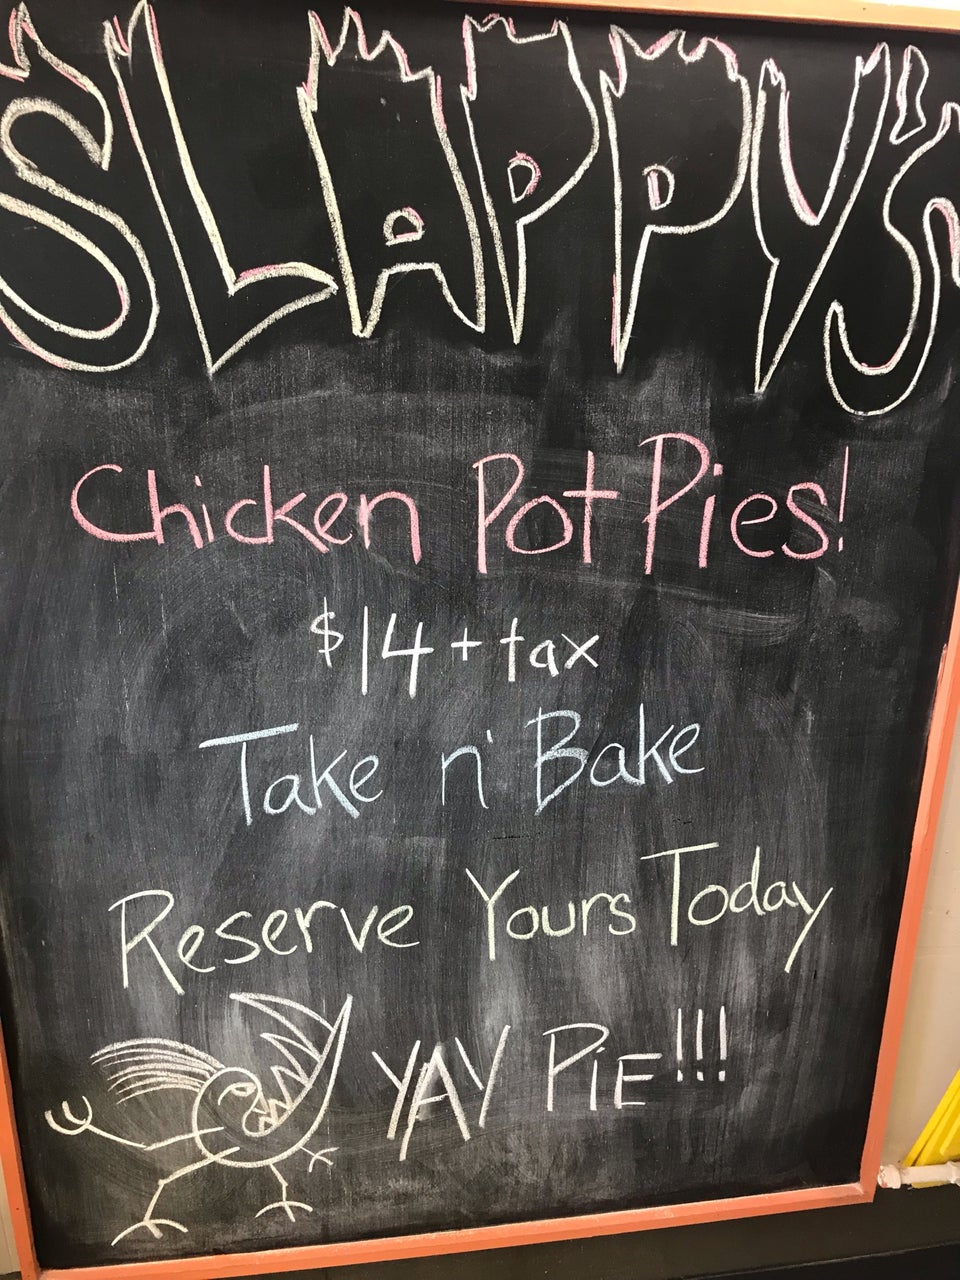 SLAPPY'S
Chicken Pot Pies!
$14 + tax
Take n' Bake
Reserve Yours Today
YAY PiE!!!